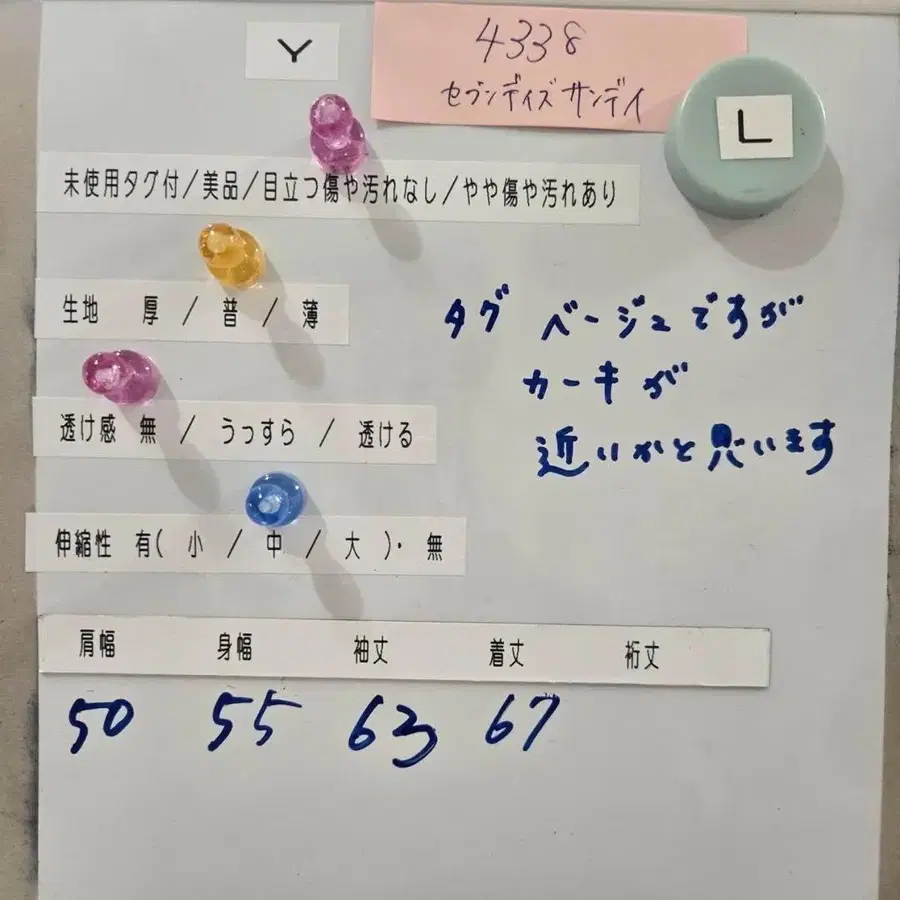 Y
4338
セブンデイズサンデイ
L
未使用タグ付/美品/目立つ傷や汚れなし/やや傷や汚れあり
生地 厚 / 普 / 薄
タグ ベージュですが
カーキが
近いかと思います
透け感 無 / うっすら / 透ける
伸縮性 有( 小 / 中 / 大 )・ 無
肩幅 身幅 袖丈 着丈 裄丈
50 55 63 67